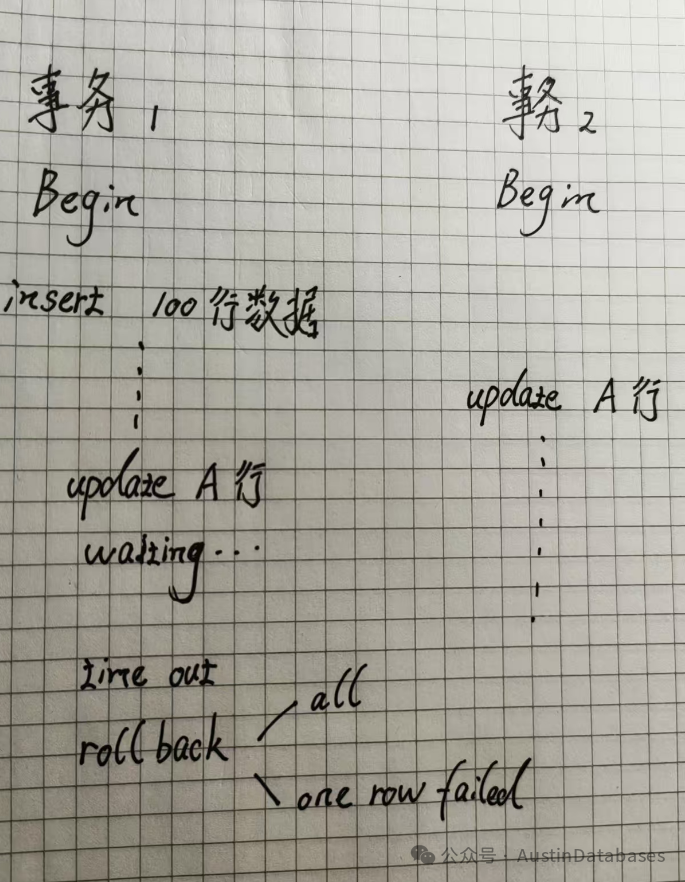 事务1
事务2
Begin
Begin
insert 100行数据
update A行
update A行
waiting...
time out
roll back
all
one row failed
公众号·AustinDatabases